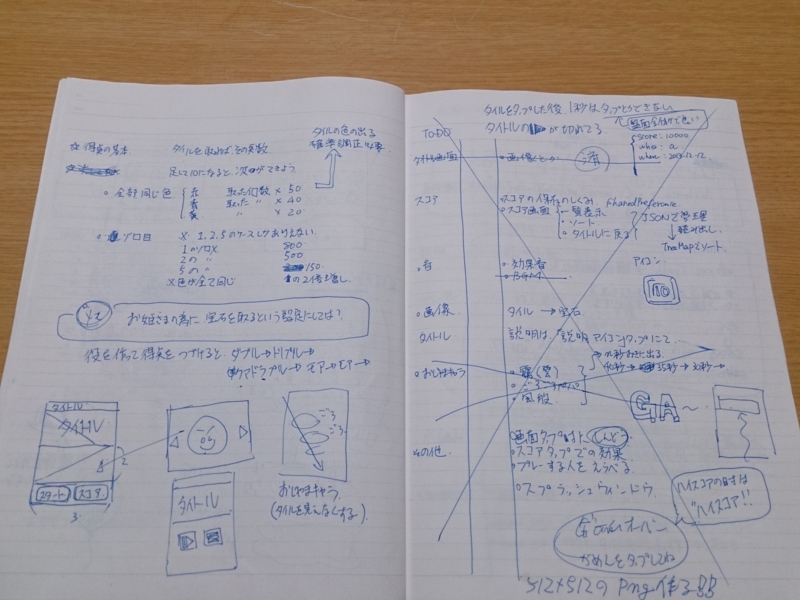 タイルの色の出る
確率調正 必要
☆ 得点の基本 タイルを取れば、その実数
足して10になると、次ができよう
○ 全部同じ色 赤 取った個数 × 50
青 取った 〃 × 40
黄 〃 × 20
○ ゾロ目 × 1.2.5のケースしかありえない
1のゾロ× 800
2の 〃 500
5の 〃 150
×色が全て同じ の2倍増し
お姫さまの為に宝石を取るという設定にしては?
役を作って得点をつづけると、ダブル→トリプル→
タイトル
タイトル
スタート スコア
2
3
タイトル
ごろ
ごろ
おじゃまキャラ
(タイルを見えなくする)
タイルをタップした後、1秒はタップとりできない
TODO タイトルの が切れてる 盤面全体で良い
score: 10000
who: a
when:
タイトル画面 ○画像とか 済
スコア スコアの保存のしくみ SharedPreference
○スコア画面 一覧表示
・ソート
・タイトルに戻る
JSONで管理
読み出し
TreeMapでソート
○音 ○効果音
アイコン
10
○画像 タイル → 宝石
タイトル 説明は、「説明」アイコンタップにて
○おじゃまキャラ ○霧(雲)
○風
秒おきに出る
35秒→30秒→
GA〜
その他 ○画面タップ時 しんどう
○スコアタップでの効果
○プレーする人をえらべる
○スプラッシュウィンドウ
ハイスコアの時は
"ハイスコア!!"
がめんをタップしてね
512×512の Png 作る